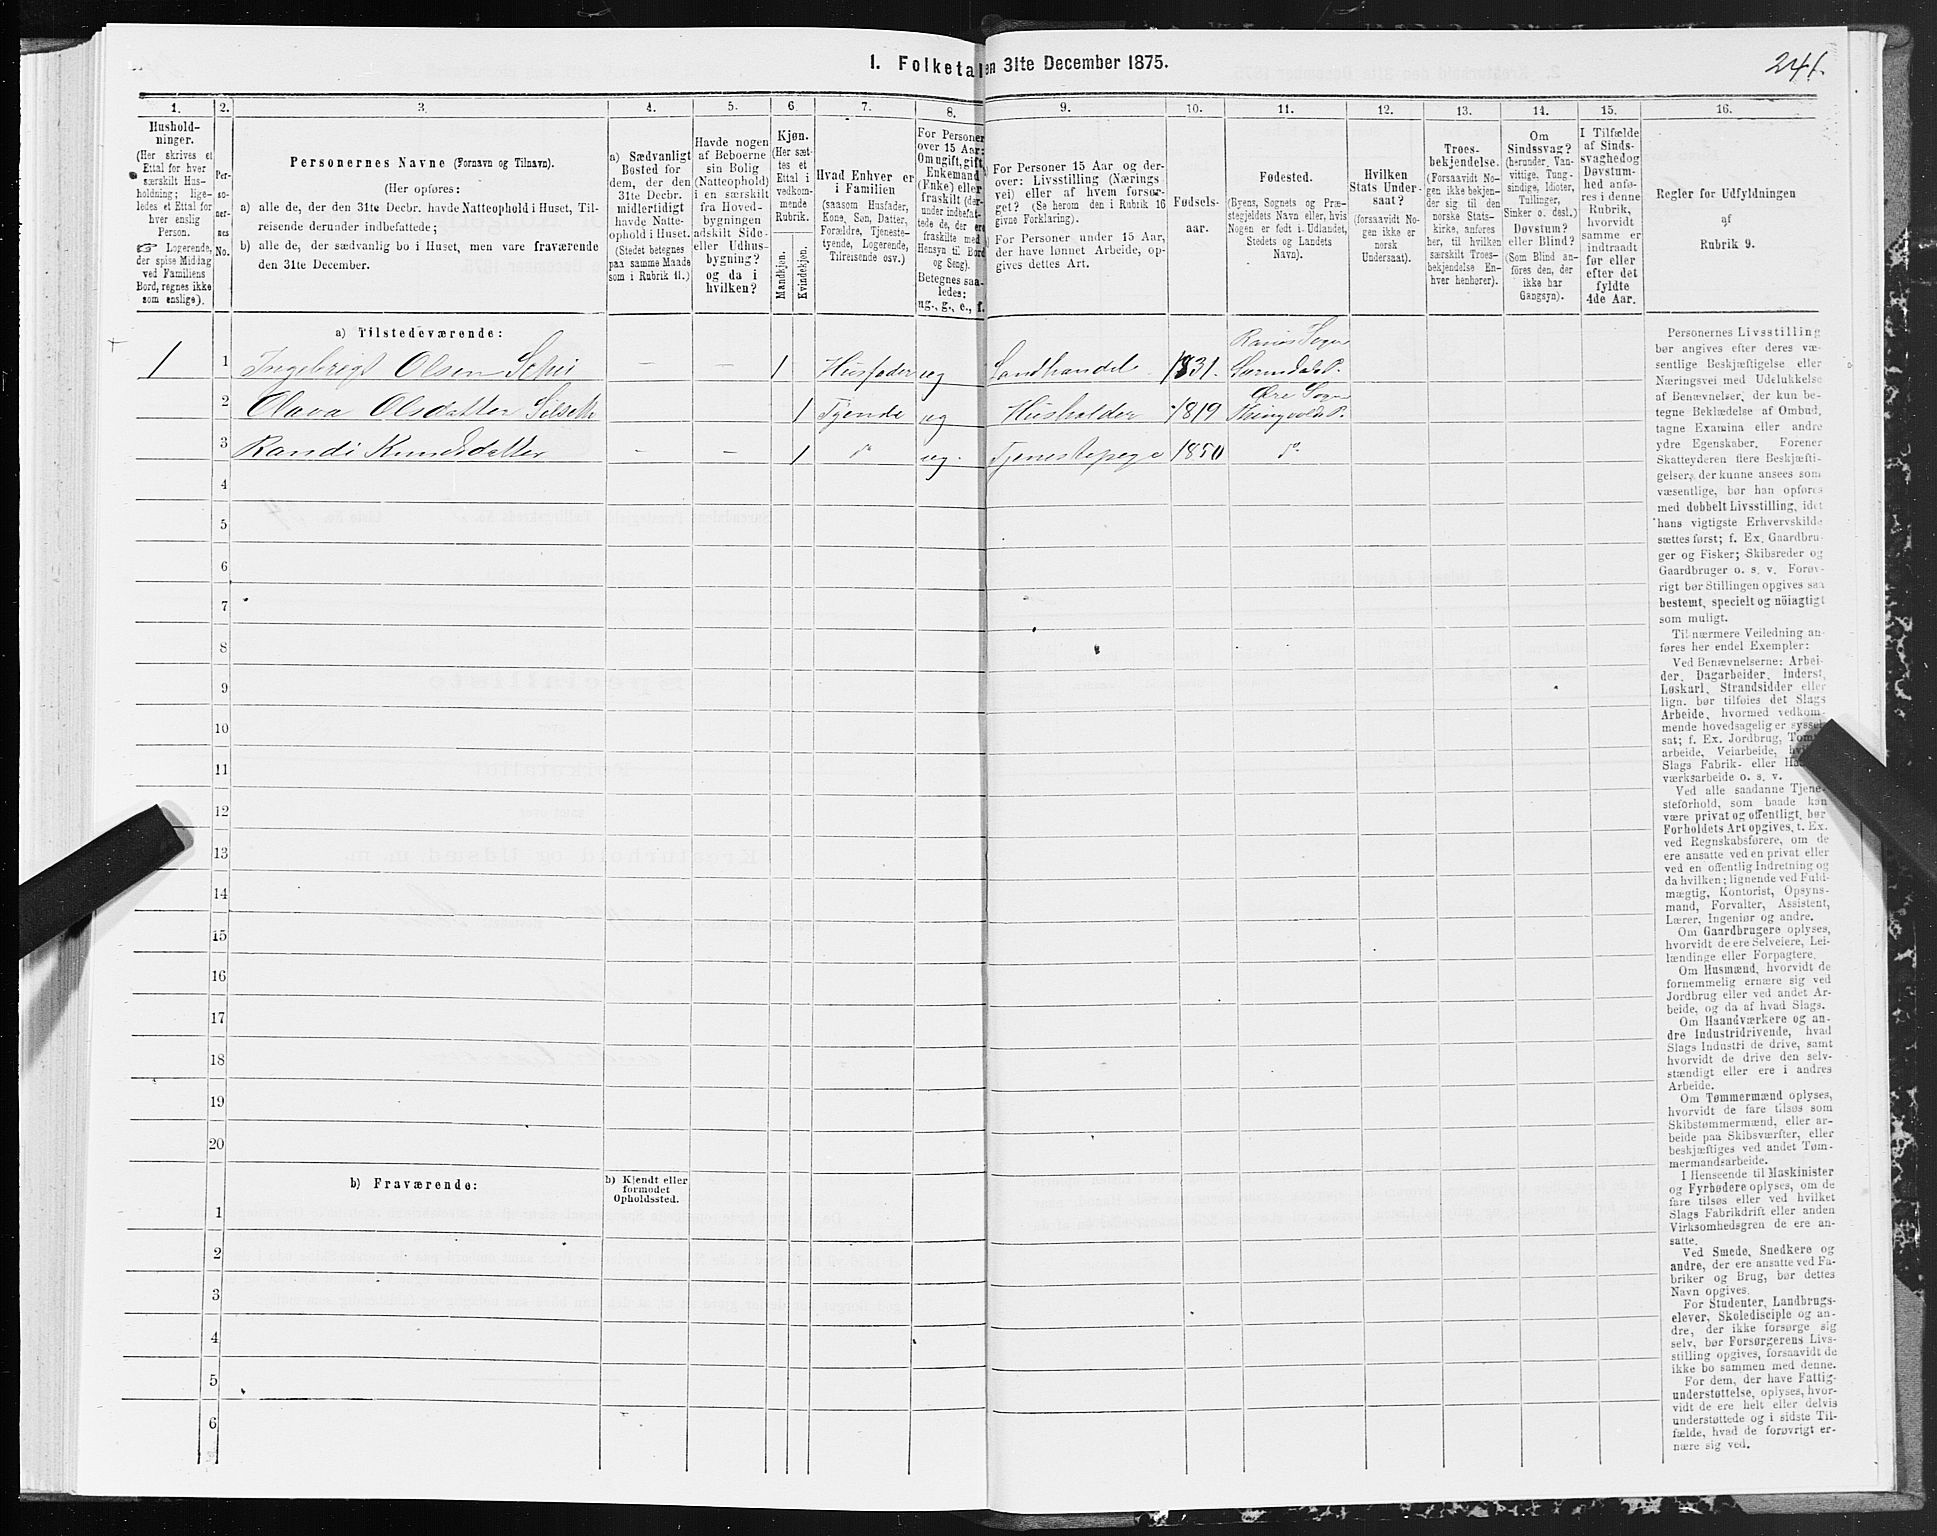 1. Folketal den 31te December 1875.
241.
1. 2. 3. 4. 5. 6. 7. 8. 9. 10. 11. 12. 13. 14. 15. 16.
Hushold-
ninger.
(Her skrives et
Ettal for hver
særskilt Hus-
holdning; lige-
ledes et Ettal for
hver enslig
Person.
☞ Logerende,
der spise Middag
ved Familiens
Bord, regnes ikke
som enslige).
Per-
so-
ner-
nes
No.
Personernes Navne (Fornavn og Tilnavn).
(Her opføres:
a) alle de, der den 31te Decbr. havde Natteophold i Huset, Til-
reisende derunder indbefattede;
b) alle de, der sædvanlig bo i Huset, men vare fraværende
den 31te December.
a) Sædvanligt
Bosted for
dem, der den
31te Decbr.
midlertidigt
havde Natte-
ophold i Huset.
(Stedet betegnes
paa samme Maade
som i Rubrik 11.)
Havde nogen
af Beboerne
sin Bolig
(Natteophold)
i en særskilt
fra Hoved-
bygningen
adskilt Side-
eller Udhus-
bygning?
og da i
hvilken?
Kjøn.
(Her sæt-
tes et
Ettal i
vedkom-
mende
Rubrik.
Mandkjøn.
Kvindekjøn.
Hvad Enhver er
i Familien
(saasom Husfader,
Kone, Søn, Datter,
Forældre, Tjeneste-
tyende, Logerende,
Tilreisende osv.)
For Personer
over 15 Aar:
Om ugift, gift,
Enkemand
(Enke) eller
fraskilt (der-
under indbefat-
tede de, der ere
fraskilte med
Hensyn til Bord
og Seng).
Betegnes saa-
ledes:
ug., g., e., f.
For Personer 15 Aar og der-
over: Livsstilling (Nærings
vei) eller af hvem forsør-
get? (Se herom den i Rubrik 16
givne Forklaring).
For Personer under 15 Aar,
der have lønnet Arbeide, op-
gives dettes Art.
Fødsels-
aar.
Fødested.
(Byens, Sognets og Præ-
stegjeldets Navn eller, hvis
Nogen er født i Udlandet,
Stedets og Landets
Navn).
Hvilken
Stats Under-
saat?
(forsaavidt No-
gen ikke er
norsk
Undersaat).
Troes-
bekjendelse.
(Forsaavidt No-
gen ikke bekjen-
der sig til den
norske Stats-
kirke, anføres
her, til hvilken
særskilt Troes-
bekjendelse En-
hver henhører).
Om
Sindssvag?
(herunder Van-
vittige, Tung-
sindige, Idioter,
Tullinger,
Sinker o. desl.)
Døvstum?
eller Blind?
(Som Blind an-
føres den, der
ikke har
Gangsyn).
I Tilfælde
af Sinds-
svaghed og
Døvstum-
hed anfø-
res i denne
Rubrik,
hvorvidt
samme er
indtraadt
før eller
efter det
fyldte
4de Aar.
Regler for Udfyldningen
af
Rubrik 9.
a) Tilstedeværende:
1 1 Ingebrigt Olsen — — 1 Husfader ug Landhandel 1831. Ranes Sogn
Surendals P.
2 Olava Olsdatter Silseth 1 Tyende ug Husholder 1819 Øre Sogn
Thingvolds P.
3 Randi Knudsdatter — — 1 do ug. Tjenestepige 1850 do
4
5
6
7
8
9
10
11
12
13
14
15
16
17
18
19
20
b) Fraværende:
b) Kjendt eller
formodet
Opholdssted.
1
2
3
4
5
6
Personernes Livsstilling
bør angives efter deres væ-
sentlige Beskjæftigelse eller
Næringsvei med Udelukkelse
af Benævnelser, der kun be-
tegne Beklædelse af Ombud,
tagne Examina eller andre
ydre Egenskaber. Forener
Skatteyderen flere Beskjæfti-
gelser, der kunne ansees som
væsentlige, bør han opføres
med dobbelt Livsstilling, idet
hans vigtigste Erhvervskilde
sættes først; f. Ex. Gaardbru-
ger og Fisker; Skibsreder og
Gaardbruger o. s. v. Forøv-
rigt bør Stillingen opgives saa
bestemt, specielt og nöiagtigt
som muligt.
Til nærmere Veiledning an-
føres her endel Exempler:
Ved Benævnelserne: Arbei-
der, Dagarbeider, Inderst,
Løskarl, Strandsidder eller
lign. bør tilføies det Slags
Arbeide, hvormed vedkom-
mende hovedsagelig er syssel-
sat; f. Ex. Jordbrug, Tomt-
arbeide, Veiarbeide, hvilket
Slags Fabrik- eller Haand-
værksarbeide o. s. v.
Ved alle saadanne Tjene-
steforhold, som baade kan
være privat og offentligt, bør
Forholdets Art opgives, t. Ex.
ved Regnskabsførere, om de
ere ansatte ved en privat eller
ved en offentlig Indretning og
da hvilken; lignende ved Fuld-
mægtig, Kontorist, Opsyns-
mand, Forvalter, Assistent,
Lærer, Ingeniør og andre.
Om Gaardbrugere oplyses,
hvorvidt de ere Selveiere, Lei-
lændinge eller Forpagtere.
Om Husmænd, hvorvidt de
fornemmelig ernære sig ved
Jordbrug eller ved andet Ar-
beide, og da af hvad Slags.
Om Haandværkere og an-
dre Industridrivende, hvad
Slags Industri de drive, samt
hvorvidt de drive den selv-
stændigt eller ere i andres
Arbeide.
Om Tømmermænd oplyses,
hvorvidt de fare tilsøs som
Skibstømmermænd, eller ar-
beide paa Skibsværfter, eller
beskjæftiges ved andet Tøm-
mermandsarbeide.
I Henseende til Maskinister
og Fyrbødere oplyses, om de
fare tilsøs eller ved hvilket
Slags Fabrikdrift eller anden
Virksomhedsgren de ere an-
satte.
Ved Smede, Snedkere og
andre, der ere ansatte ved Fa-
briker og Brug, bør dettes
Navn opgives.
For Studenter, Landbrugs-
elever, Skoledisciple og an-
dre, der ikke forsørge sig
selv, bør Forsørgerens Livs-
stilling opgives, forsaavidt de
ikke bo sammen med denne.
For dem, der have Fattig-
understøttelse, oplyses, hvor-
vidt de ere helt eller delvis
understøttede og i sidste Til-
fælde, hvad de forøvrigt er-
nære sig ved.